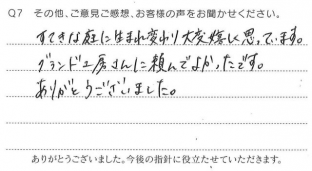 Q7 その他、ご意見ご感想、お客様の声をお聞かせください。
すてきな庭に生まれ変わり大変嬉しく思っています。
グランド工房さんに頼んでよかったです。
ありがとうございました。
ありがとうございました。今後の指針に役立たせていただきます。